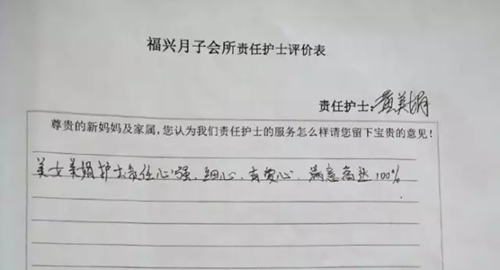 福兴月子会所责任护士评价表
责任护士:黄美娟
尊贵的新妈妈及家属,您认为我们责任护士的服务怎么样请您留下宝贵的意见!
美女美娟护士责任心强、细心、有爱心、满意高达100%